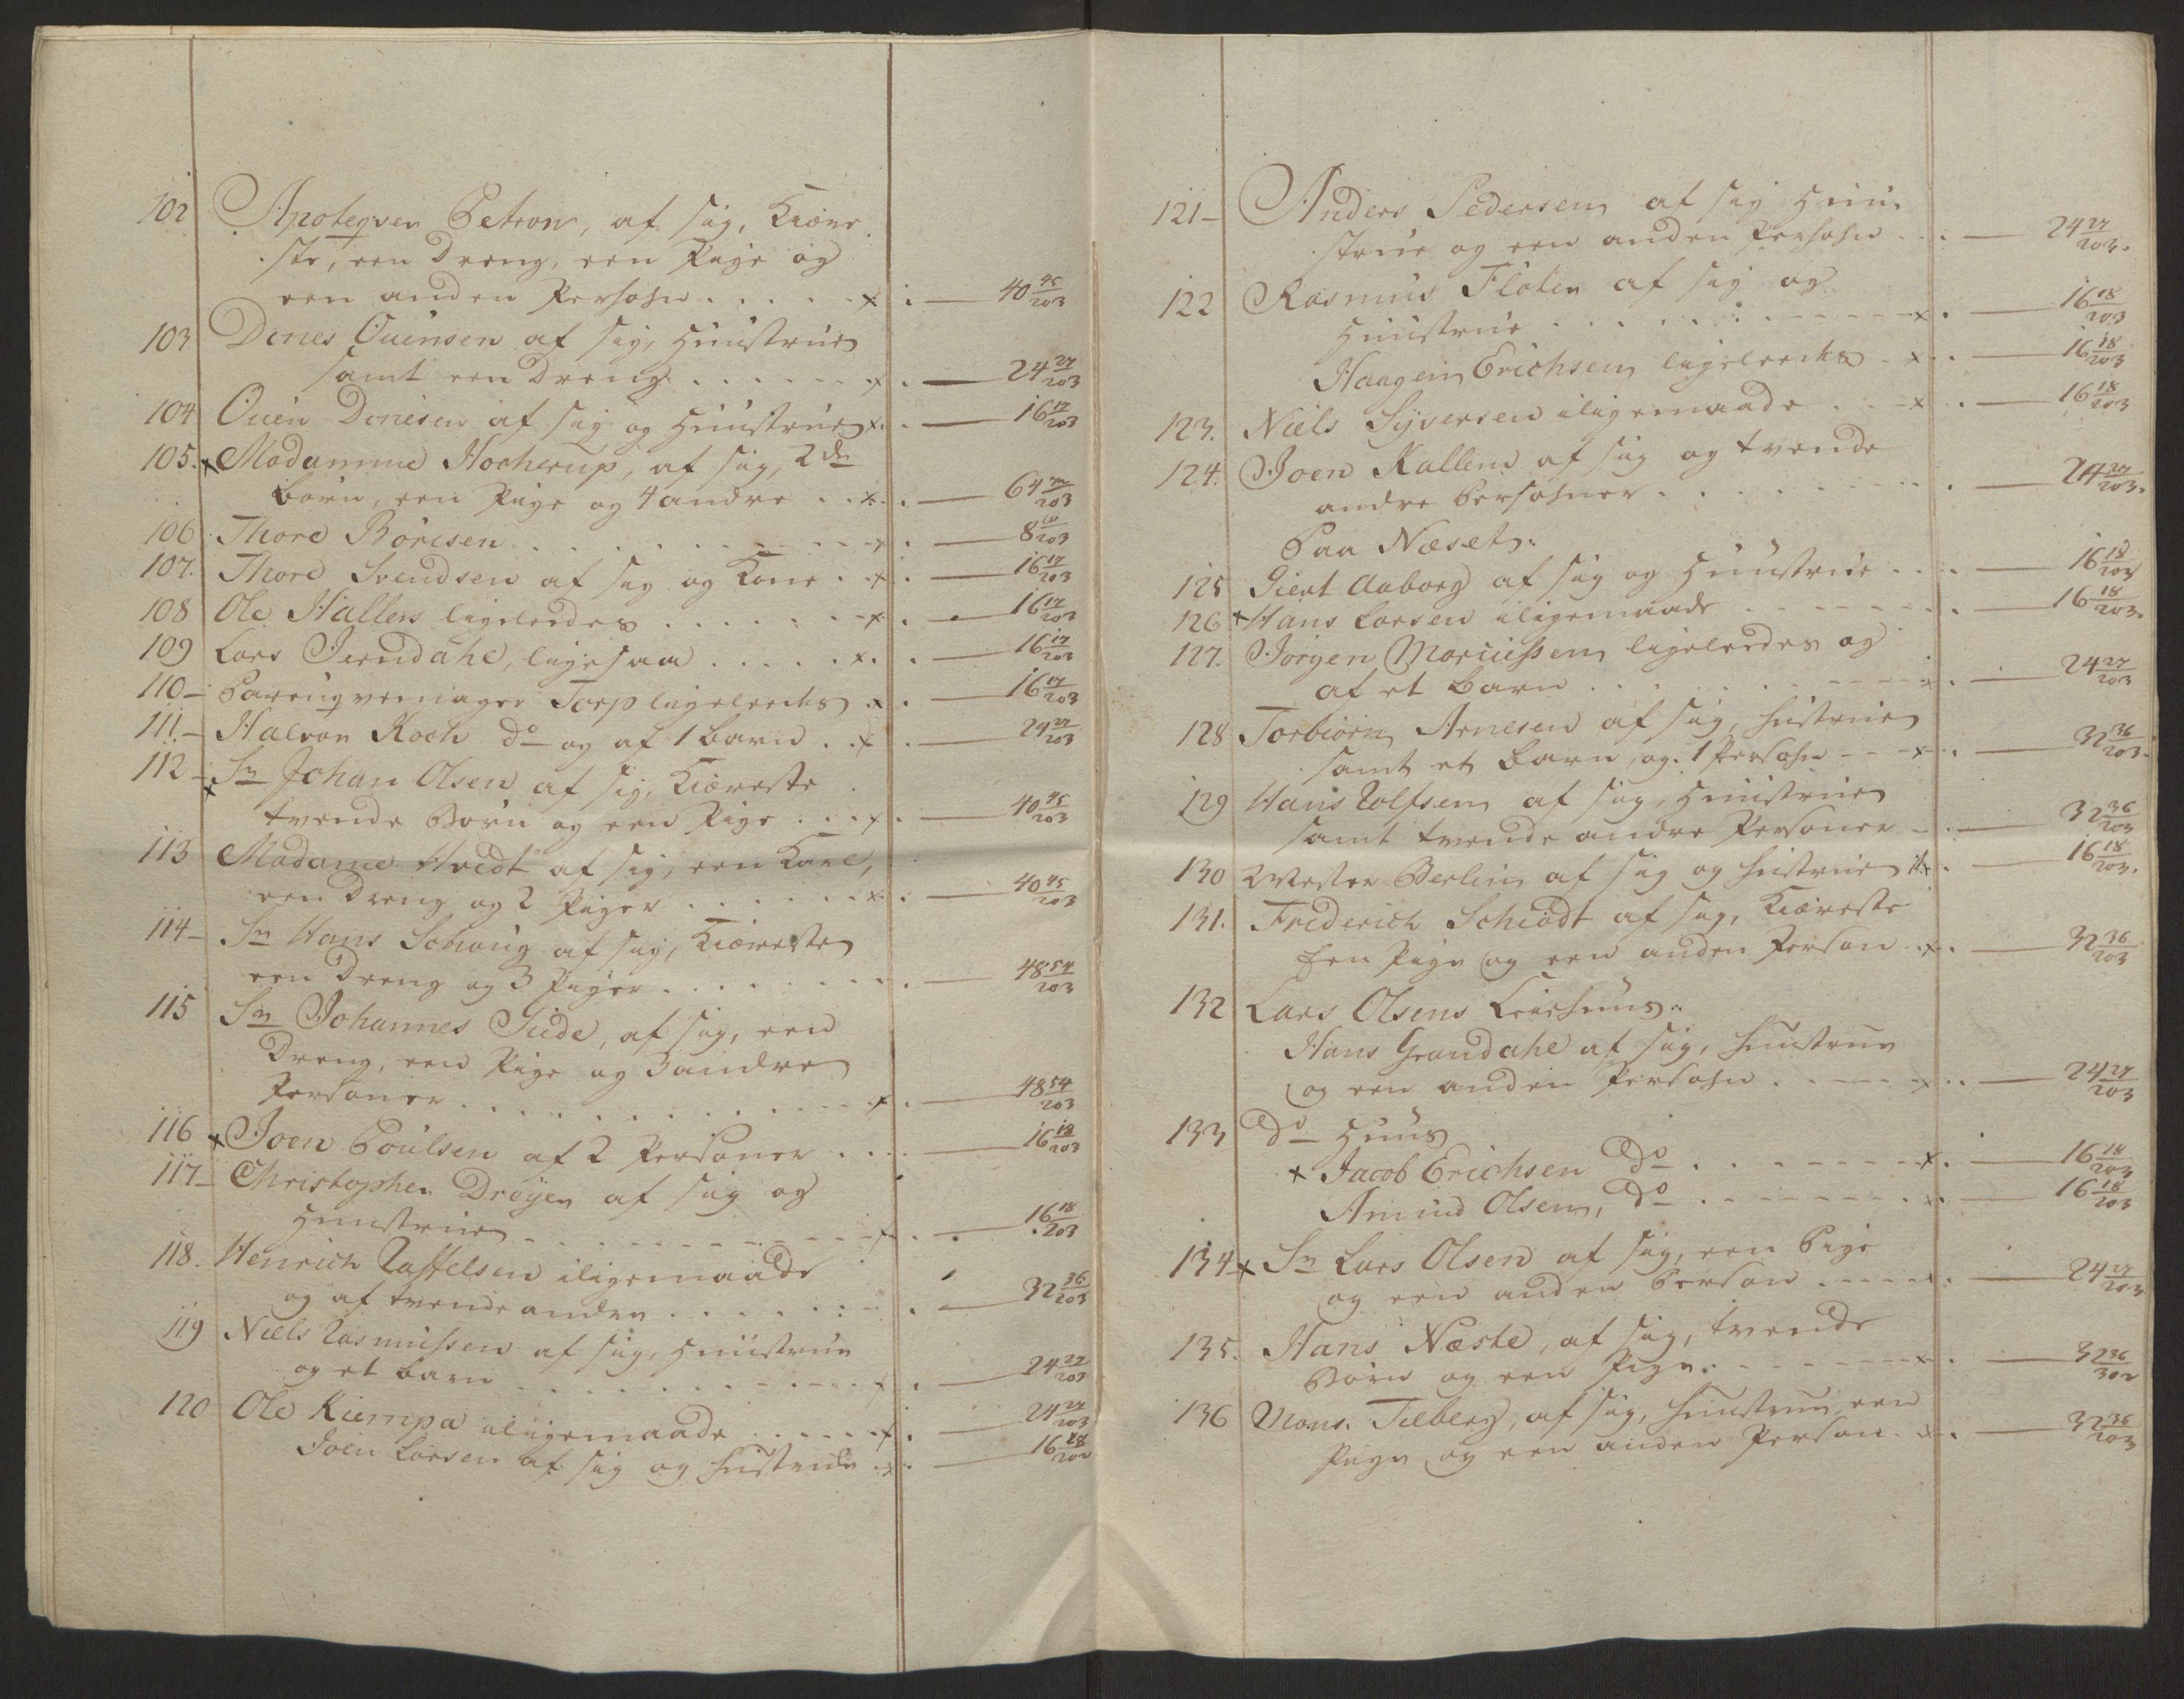 102 Apoteqver Petron, af sig, Kiære
ste, een Dreng, een Pige og
een anden Persohn . . . . . x . — 40 45/203
103. Dines Ouensen af sig, Huustrue
samt een Dreng . . . . . . x . — 24 27/203
104 Ouen Denisen af sig og Huustrue x. . — 16 17/203
105. x Madamme Hocherup, af sig, 2de
børn, een Pige og 4 andre . . x . — 64 /203
106 Thore Börresen . . . . . . x . — 8 /203
107. Thore Svendsen af sig og Kone . x . — 16 17/203
108 Ole Hallens ligeledes . . . . . x . — 16 17/203
109 Lars Jerndahl, ligesaa . . . . . x . — 16 17/203
110 – Paruqvemager Torp ligeleedes x . — 16 17/203
111. – Halvor Koch do og af 1 barn . . x . — 24 27/203
112 – x Sr Johan Olsen af sig, Kiæreste
tvende Børn og een Pige . . . x . — 40 45/203
113 Madame Hvidt af sig, een Karl,
een Dreng og 2 Piger . . . . . . x . — 40 45/203
114 – Sr Hans Schoug af sig, Kiæreste
een Dreng og 3 Piger . . . . . . . — 48 54/203
115 Sr Johannes Giede, af sig, een
Dreng, een Pige og 3 andre
Personer . . . . . . . . . x . — 48 54/203
116 x Joen Poulsen af 2 Personer . . . — 16 18/203
117 – Christopher Dreyer af sig og
Huustrue . . . . . . . . x . — 16 18/203
118. Henrich Taffelsen iligemaade
og af tvende andre . . . . . . . — 32 36/203
119 Niels Rasmussen af sig, Huustrue
og et barn . . . . . . . . x . — 24 27/203
120 Ole Kiempa iligemaade . . . . . x . — 24 27/203
Joen Larsen af sig og Huustrue x . — 16 18/202
121 – Anders Pedersen af sig Huu
strue og een anden Persohn . . . — 24 27/203.
122 Rasmus Floten af sig og
Huustrue . . . . . . . . . x . — 16 18/203
Haagen Erichsen ligeleedes - x . — 16 18/203
123. Niels Syversen iligemaade . . x . — 16 18/203
124. Joen Kallem af sig og tvende
andre Persohner . . . . . . . . — 24 27/203.
Paa Næset:
125 Giert Aaborg af sig og Huustrue . . . — 16 18/203
126 x Hans Larsen iligemaade . . . . . . — 16 18/203.
127. Jörgen Marcussen ligeledes og
af et barn . . . . . . . . . — 24 27/203
128 Torbiörn Arnesen af sig, Hustrue
samt et barn, og 1 Persohn - - - x . — 32 36/203.
129 Hans Rolfsen af sig, Huustrue
samt tvende andre Personer - . — 32 36/203
130 Mester Berlin af sig og Hustrue x . — 16 18/203.
131. Friderich Schiödt af sig, Kiæreste
Een Pige og een anden Person . x . — 32 36/203
132 Lars Olsens Leiehuus:
Hans Grandahl af sig, Huustrue
og een anden Persohn . . . . . x . — 24 27/203
133 do Huus
x Jacob Erichsen do . . . . . . x . — 16 18/203
Amund Olsen, do . . . . . . x . — 16 18/203
134 x Sr Lars Olsen af sig, een Pige
og een anden Person . . . . . x . — 24 27/203
135. Hans Næste, af sig, tvende
Børn og een Pige . . . . . . x . — 32 36/302
136 Mons. Tilberg, af sig, Huustrue, een
Pige og een anden Person . x . — 32 36/203